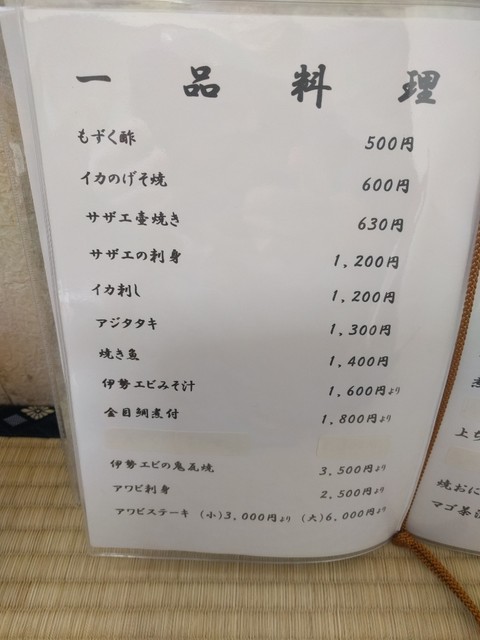 一品料理
もずく酢 500円
イカのげそ焼 600円
サザエ壺焼き 630円
サザエの刺身 1,200円
イカ刺し 1,200円
アジタタキ 1,300円
焼き魚 1,400円
伊勢エビみそ汁 1,600円より
金目鯛煮付 1,800円より
伊勢エビの鬼瓦焼 3,500円より
アワビ刺身 2,500円より
アワビステーキ (小)3,000円より (大)6,000円より
上ち
焼おに
マゴ茶